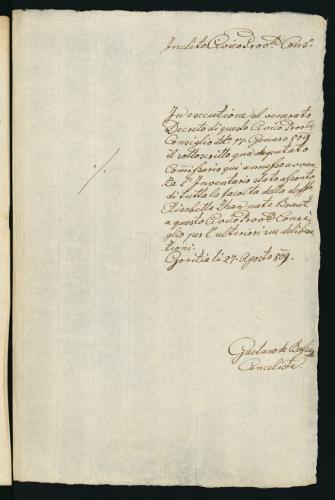 Inclito Civico Prov.le Cons.o
In esecutione al venerato
Decreto di questo Civico Prov.le
Consiglio dd.o 17 Genaro 809
il sottoscritto quà deputato
Comissario qui annesso avvan-
za l'Inventario stato assonto
di tutta la facoltà della
Elisabetta nata
a questo Civico Prov.le Consi-
glio per l'ulteriori sue delibera-
tioni.
Goritia li 27. Agosto 809.
Gaetano de
Cancelista.